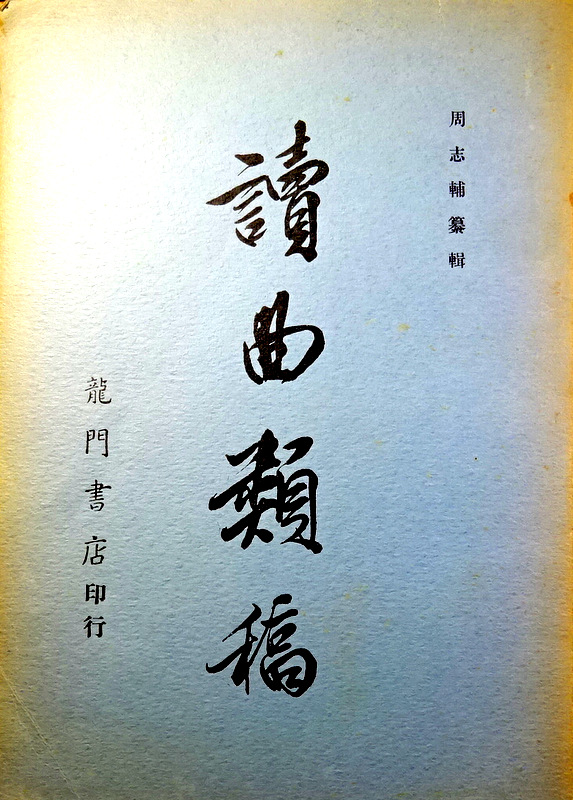 周志輔纂輯
讀曲類稿
龍門書店印行